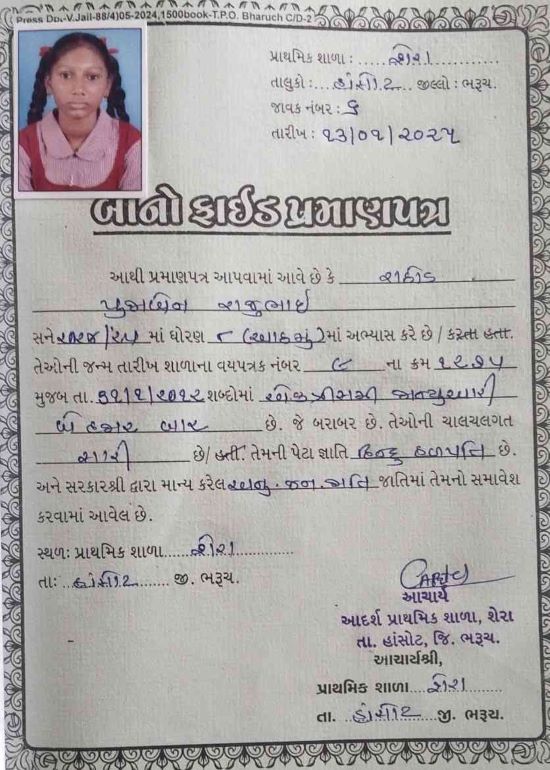 Press Do.-V.Jail-88/4)05-2024,1500book-T.P.O. Bharuch C/D-2
પ્રાથમિક શાળા : શેરા
તાલુકો : હાંસોટ જીલ્લો : ભરૂચ.
જાવક નંબર :
તારીખ : ૧૩/૦૧/૨૦૨૫
બોનો ફાઈડ પ્રમાણપત્ર
આથી પ્રમાણપત્ર આપવામાં આવે છે કે રાઠોડ
રાજુભાઈ
સને ૨૦૨૪/૨૫ માં ધોરણ ૮ (આઠમું) માં અભ્યાસ કરે છે / કરતા હતા.
તેઓની જન્મ તારીખ શાળાના વયપત્રક નંબર ૯ ના ક્રમ ૧૨૭૫
મુજબ તા. ૩૧/૧/૨૦૧૨ શબ્દોમાં એકત્રીસમી જાન્યુઆરી
બે હજાર બાર છે. જે બરાબર છે. તેઓની ચાલચલગત
સારી છે/ હતી. તેમની પેટા જ્ઞાતિ હિન્દુ હળપતિ છે.
અને સરકારશ્રી દ્વારા માન્ય કરેલ અનુ. જન. જાતિ જાતિમાં તેમનો સમાવેશ
કરવામાં આવેલ છે.
સ્થળઃ પ્રાથમિક શાળા શેરા
તાઃ હાંસોટ જી. ભરૂચ.
આચાર્ય
આદર્શ પ્રાથમિક શાળા, શેરા
તા. હાંસોટ, જિ. ભરૂચ.
આચાર્યશ્રી,
પ્રાથમિક શાળા શેરા
તા. હાંસોટ જી. ભરૂચ.